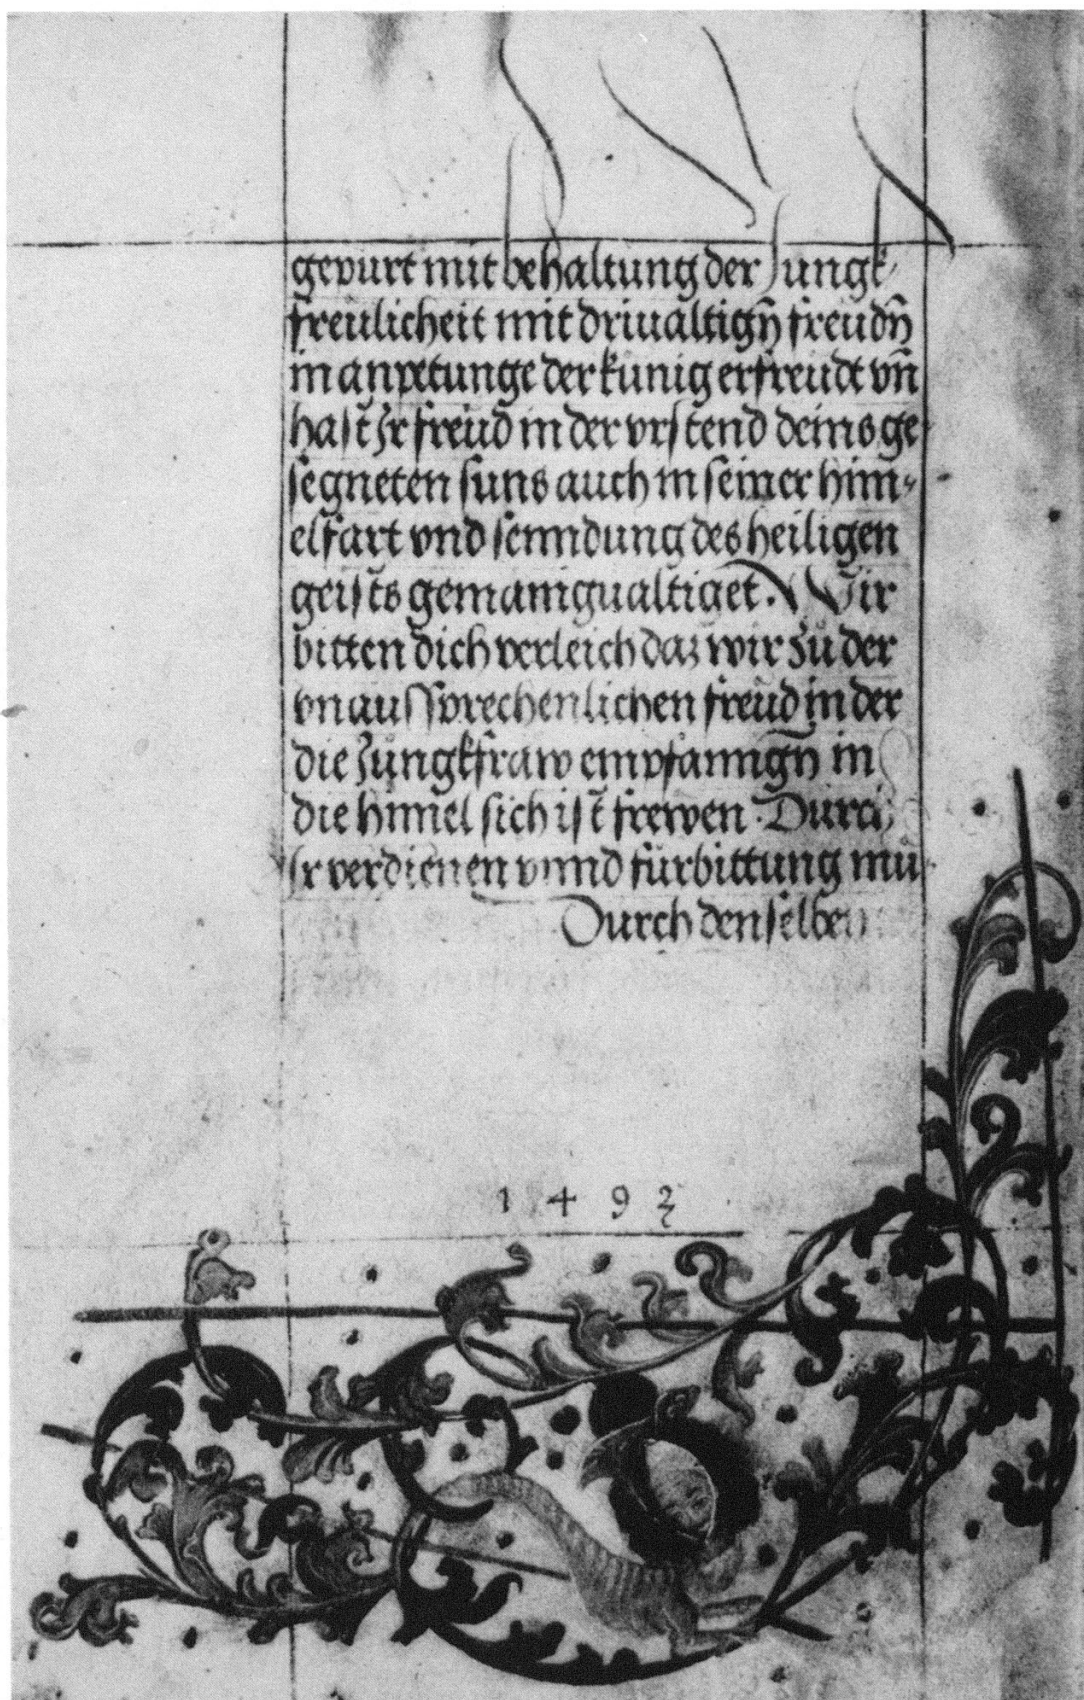 gepurt mit behaltung der Jungk-
freulicheit mit driualtigñ freudñ
in anpetunge der kunig erfreudt vñ
hast Jr freud in der vrstend deins ge-
segneten suns auch in seiner him-
elfart vnd senndung des heiligen
geists gemanigualtiget. Wir
bitten dich verleich daz wir zu der
vnaussprechenlichen freud in der
die Jungkfraw empfanngñ in
die himel sich ist frewen. Durch
Jr verdienen vnnd fürbittung
Durch denselben
1492